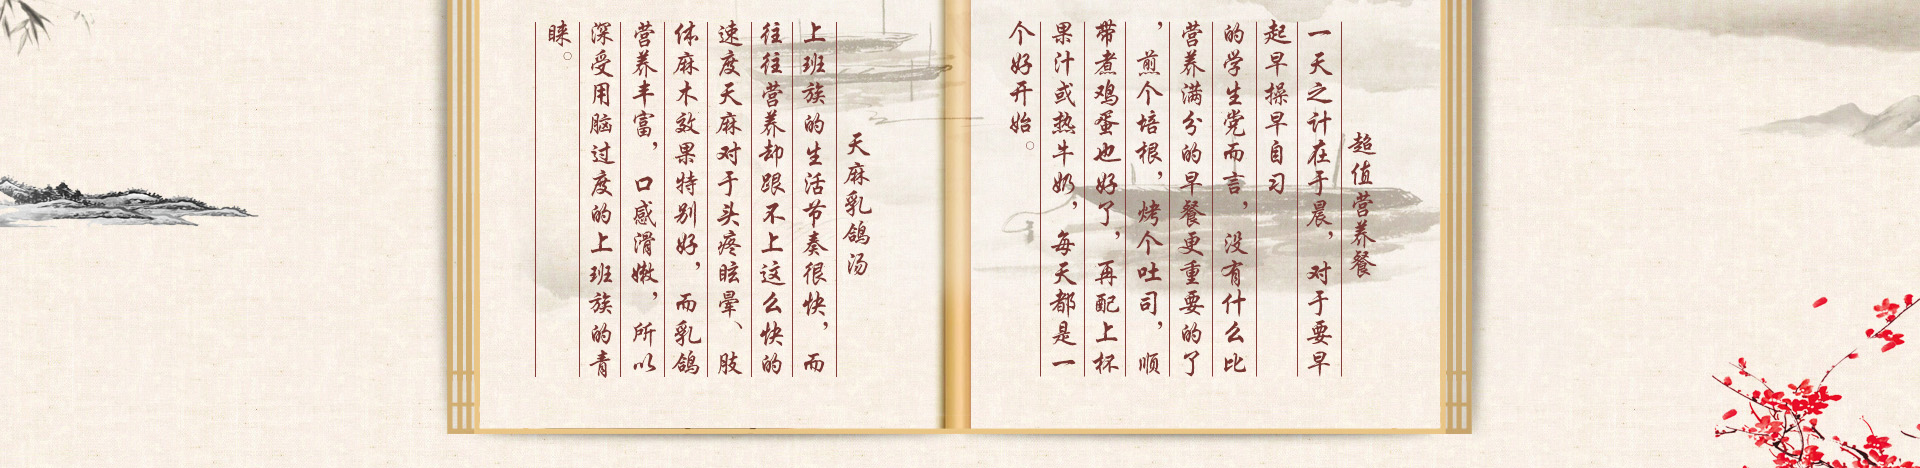 超值营养餐
一天之计在于晨，对于要早
起早操早自习
的学生党而言，没有什么比
营养满分的早餐更重要的了
，煎个培根，烤个吐司，顺
带煮鸡蛋也好了，再配上杯
果汁或热牛奶，每天都是一
个好开始。
天麻乳鸽汤
上班族的生活节奏很快，而
往往营养却跟不上这么快的
速度天麻对于头疼眩晕、肢
体麻木效果特别好，而乳鸽
营养丰富，口感滑嫩，所以
深受用脑过度的上班族的青
睐。